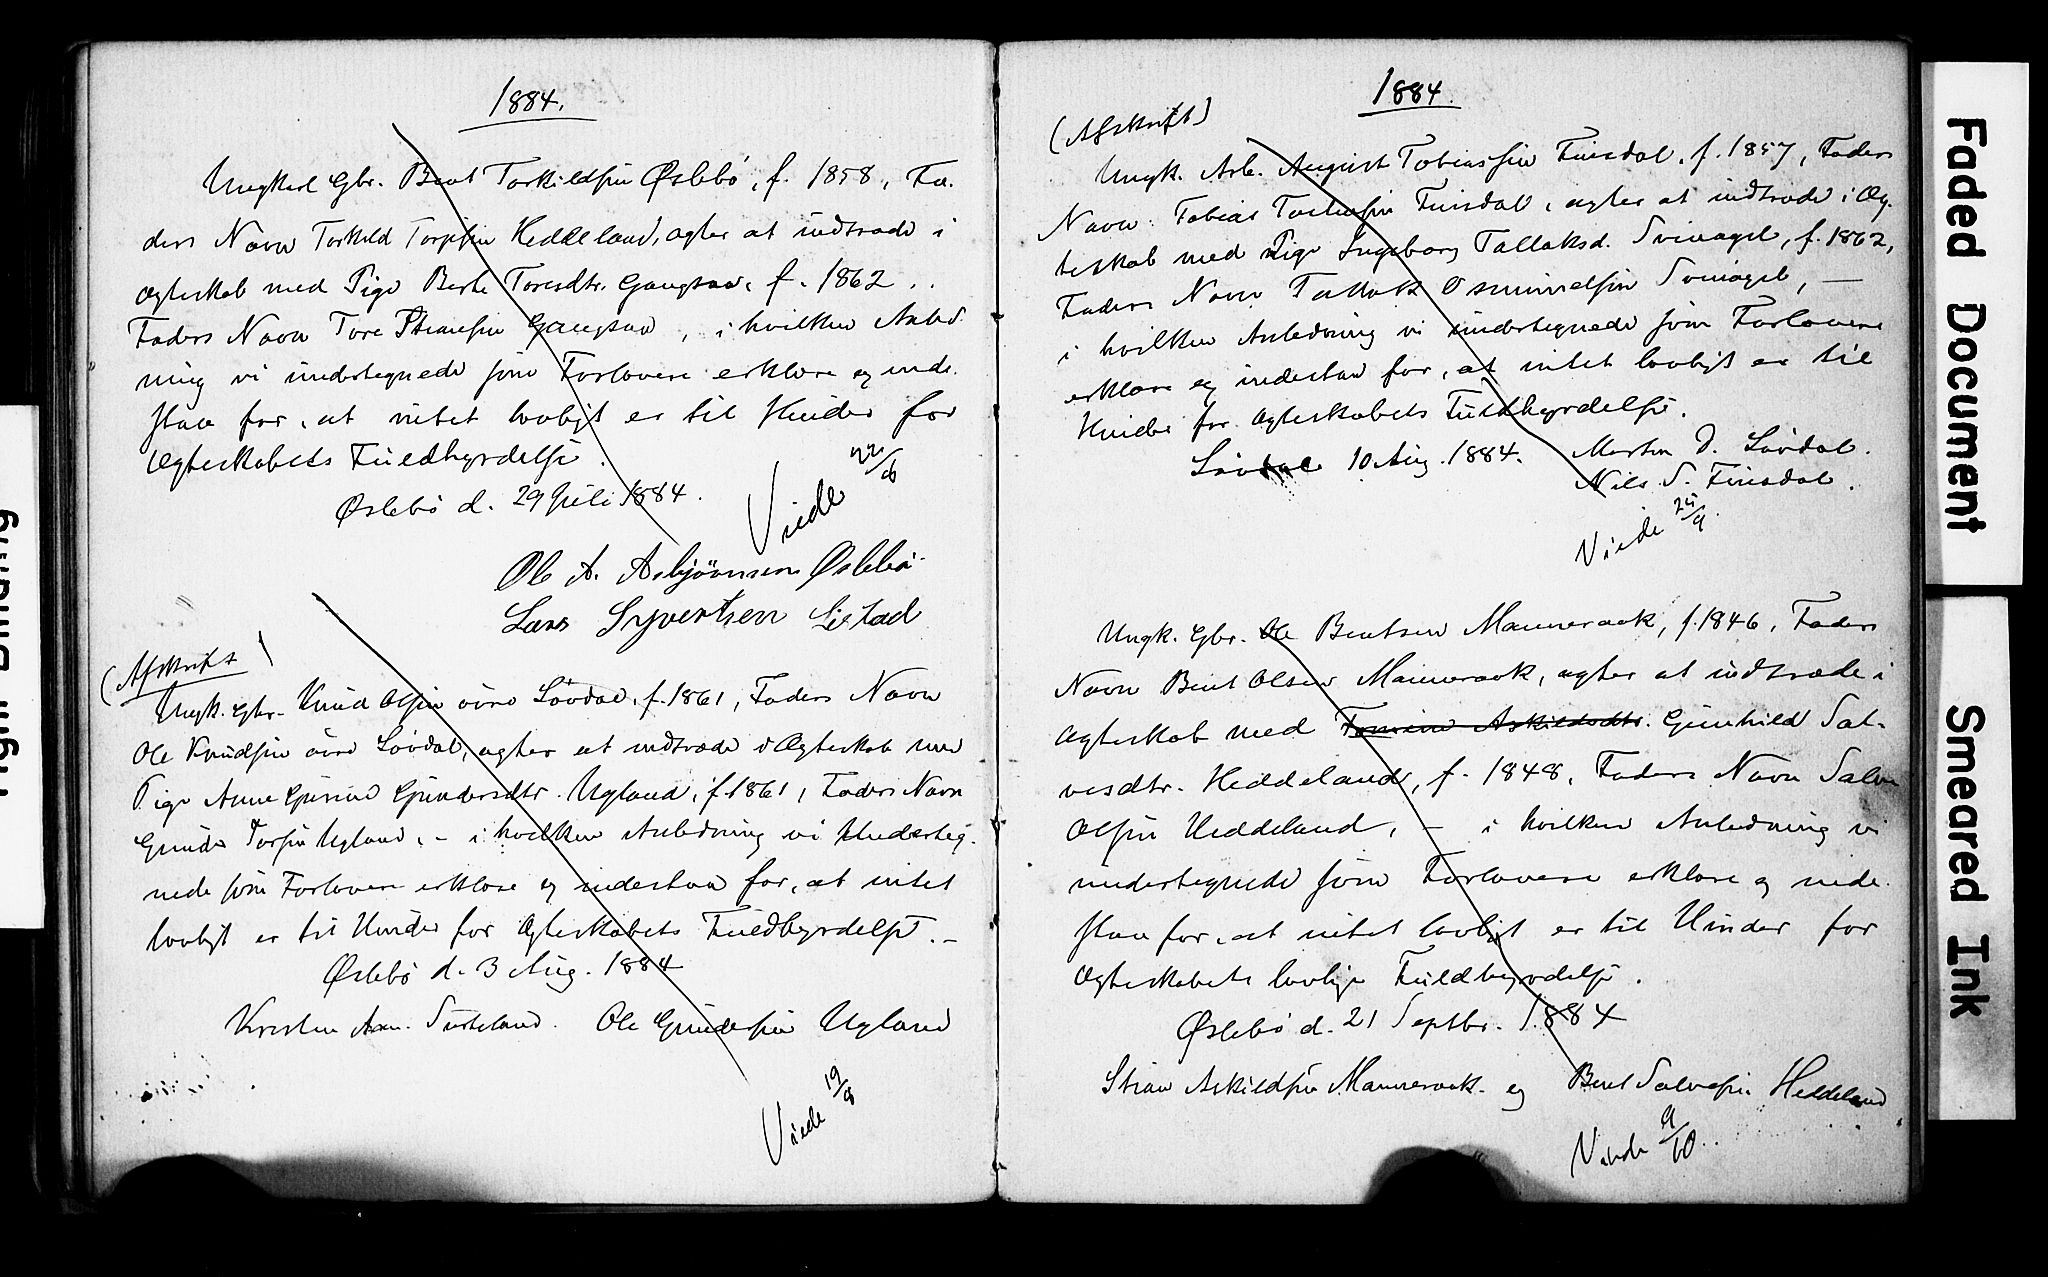 1884.
Ungkarl Gbr. Bent Torkildsen Øslebö, f. 1858, Fa-
ders Navn Torkild Torjesen Heddeland, agter at indtræde i
Ægteskab med Pige Berte Toresdtr. Gangsaa, f. 1862.
Faders Navn Tore Gangsaa, i hvilken Anled-
ning vi undertegnede som Forlovere erklære og inde-
staa for, at intet lovligt er til Hinder for
Ægteskabets Fuldbyrdelse.
Øslebö d. 29 Juli 1884.
Viede
Ole A. Asbjörnsen Øslebö
Lars Syvertsen Listad
(Afskrift)
Ungk. Gbr. Knud Olsen övre Lövdal, f. 1861, Faders Navn
Ole Knudsen övre Lövdal, agter at indtræde i Ægteskab med
Pige Anne Gurine Gundersdtr. Ugland, f. 1861, Faders Navn
Gunder Torsen Ugland, - i hvilken Anledning vi Underteg-
nede som Forlovere erklære og indestaa for, at intet
lovligt er til Hinder for Ægteskabets Fuldbyrdelse. -
Øslebö d. 3 Aug. 1884
Kristen Aan. Ole Gundersen Ugland
Viede 19/8
1884.
(Afskrift)
Ungk. Arb. August Tobiassen Finsdal, f. 1857, Faders
Navn: Tobias Finsdal, agter at indtræde i Æg-
teskab med Pige Ingeborg Tallaksd. Svinagel, f. 1862,
Faders Navn Tallak Osmundsen Svinagel, -
i hvilken Anledning vi undertegnede som Forlovere
erklære og indestaa for, at intet lovligt er til
Hinder for Ægteskabets Fuldbyrdelse.
Lövdal 10 Aug. 1884. Martin D. Lövdal.
Nils S. Finsdal.
Viede 25/9.
Ungk. Gbr. Ole Bentsen Manneraak, f. 1846, Faders
Navn Bent Olsen Manneraak, agter at indtræde i
Ægteskab med Tomine Askildsdtr. Gunhild Sal-
vesdtr. Heddeland, f. 1848, Faders Navn Salve
Olsen Heddeland, - i hvilken Anledning vi
undertegnede som Forlovere erklære og inde-
staa for, at intet lovligt er til Hinder for
Ægteskabets lovlige Fuldbyrdelse.
Øslebö d. 21 Septbr. 1884
Stian Askildsen Manneraak og Bent Salvesen Heddeland
Viede 9/10.
Faded Document
Smeared Ink